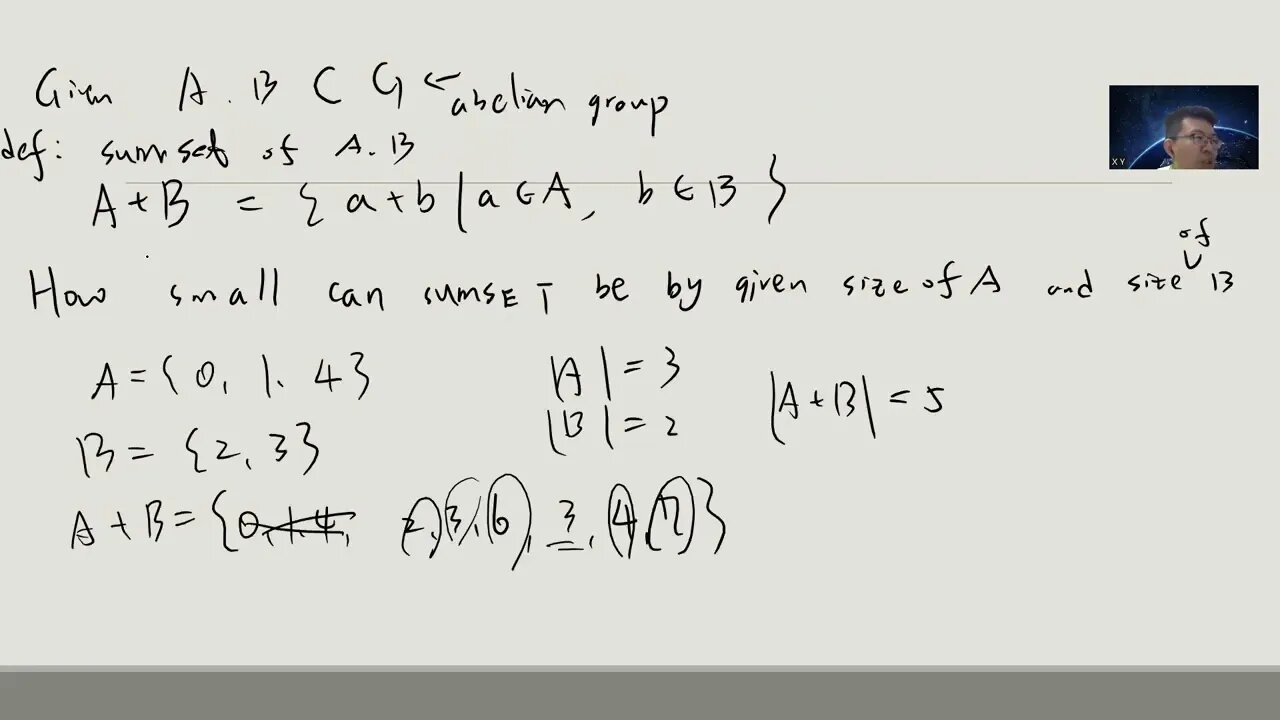 Given A. B ⊂ G ← abelian group
def: sumset of A. B
A + B = { a + b | a ∈ A, b ∈ B }
of
How small can sumset be by given size of A and size B
A = { 0, 1. 4 } |A| = 3
|A + B| = 5
B = { 2, 3 } |B| = 2
A + B = { 0, 1, 4, 2, 3, 6, 3, 4, 7 }
X Y